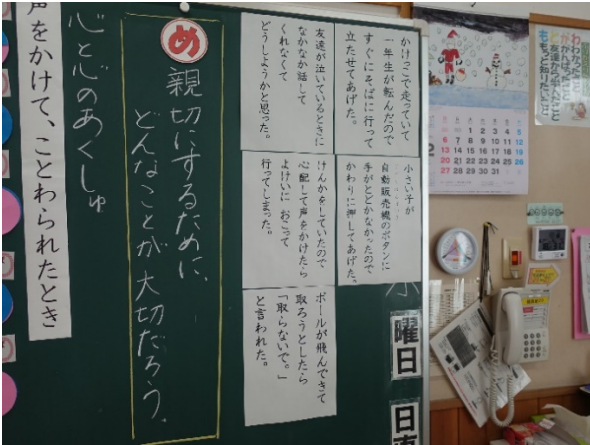 かけっこで走っていて
一年生が転んだので
すぐにそばに行って
立たせてあげた。
友達が泣いているときに
なかなか話して
くれなくて
どうしようかと思った。
小さい子が
自動販売機のボタンに
手がとどかなかったので
かわりに押してあげた。
けんかをしていたので
心配して声をかけたら
よけいにおこって
行ってしまった。
ボールが飛んできて
取ろうとしたら
「取らないで。」
と言われた。
め
親切にするために、
どんなことが大切だろう。
心と心のあくしゅ
声をかけて、ことわられたとき
曜日
日直
わかったこと
がんばったこと
友達から学んだこと
もっと知りたいこと
1 2 3 4 5
6 7 8 9 10 11 12
13 14 15 16 17 18 19
20 21 22 23 24 25 26
27 28 29 30 31